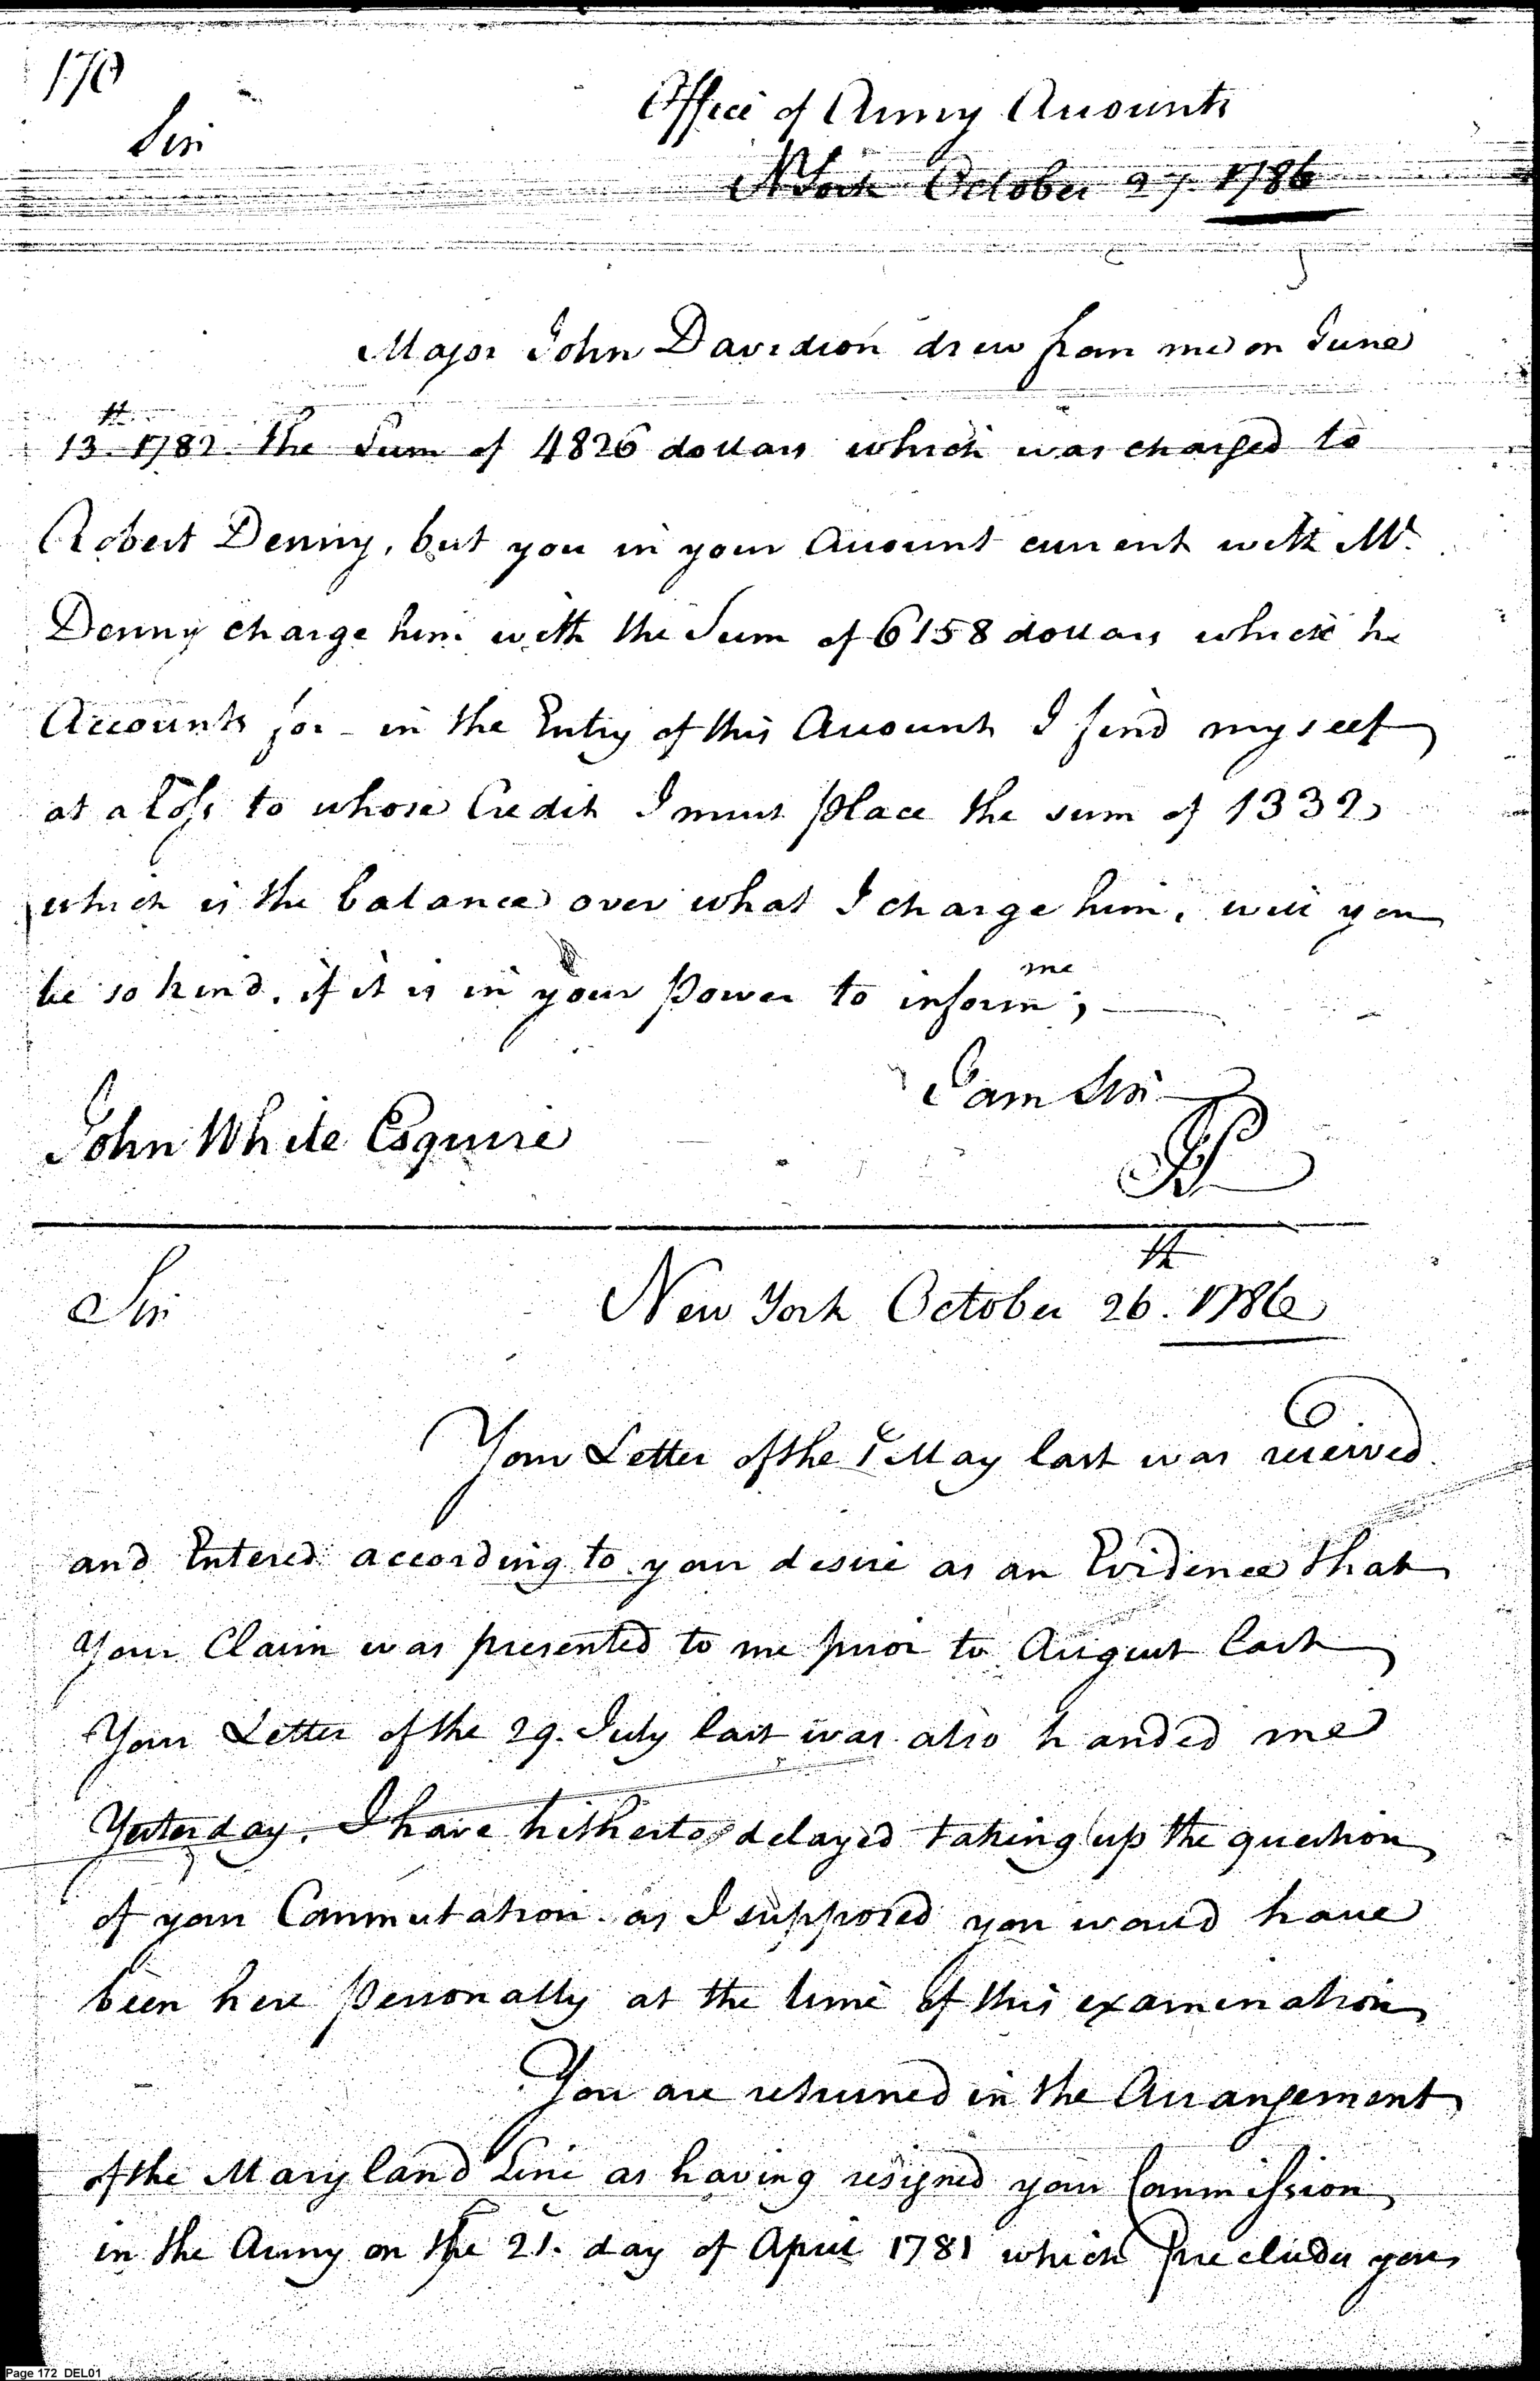 170
Office of Army Accounts
Sir
N York October 27. 1786
Major John Davidson drew from me on June
13th 1782. the Sum of 4826 dollars which was charged to
Robert Denny, but you in your Account current with Mr.
Denny charge him with the Sum of 6158 dollars which he
Accounts for - in the Entry of this Account I find myself
at a loss to whose Credit I must place the sum of 1332
which is the balance over what I charge him, will you
be so kind, if it is in your Power to inform me;
I am Sir
John White Esquire
JP
Sir
New York October 26th. 1786
Your Letter of the 1 May last was received
and Entered according to your desire as an Evidence that
your Claim was presented to me prior to August last
Your Letter of the 29. July last was also handed me
Yesterday. I have hitherto delayed taking up the question
of your Commutation as I supposed you would have
been here Personally at the time of this examination
You are returned in the Arrangement
of the Maryland Line as having resigned your Commission
in the Army on the 21. day of April 1781 which precludes you
Page 172 DEL01